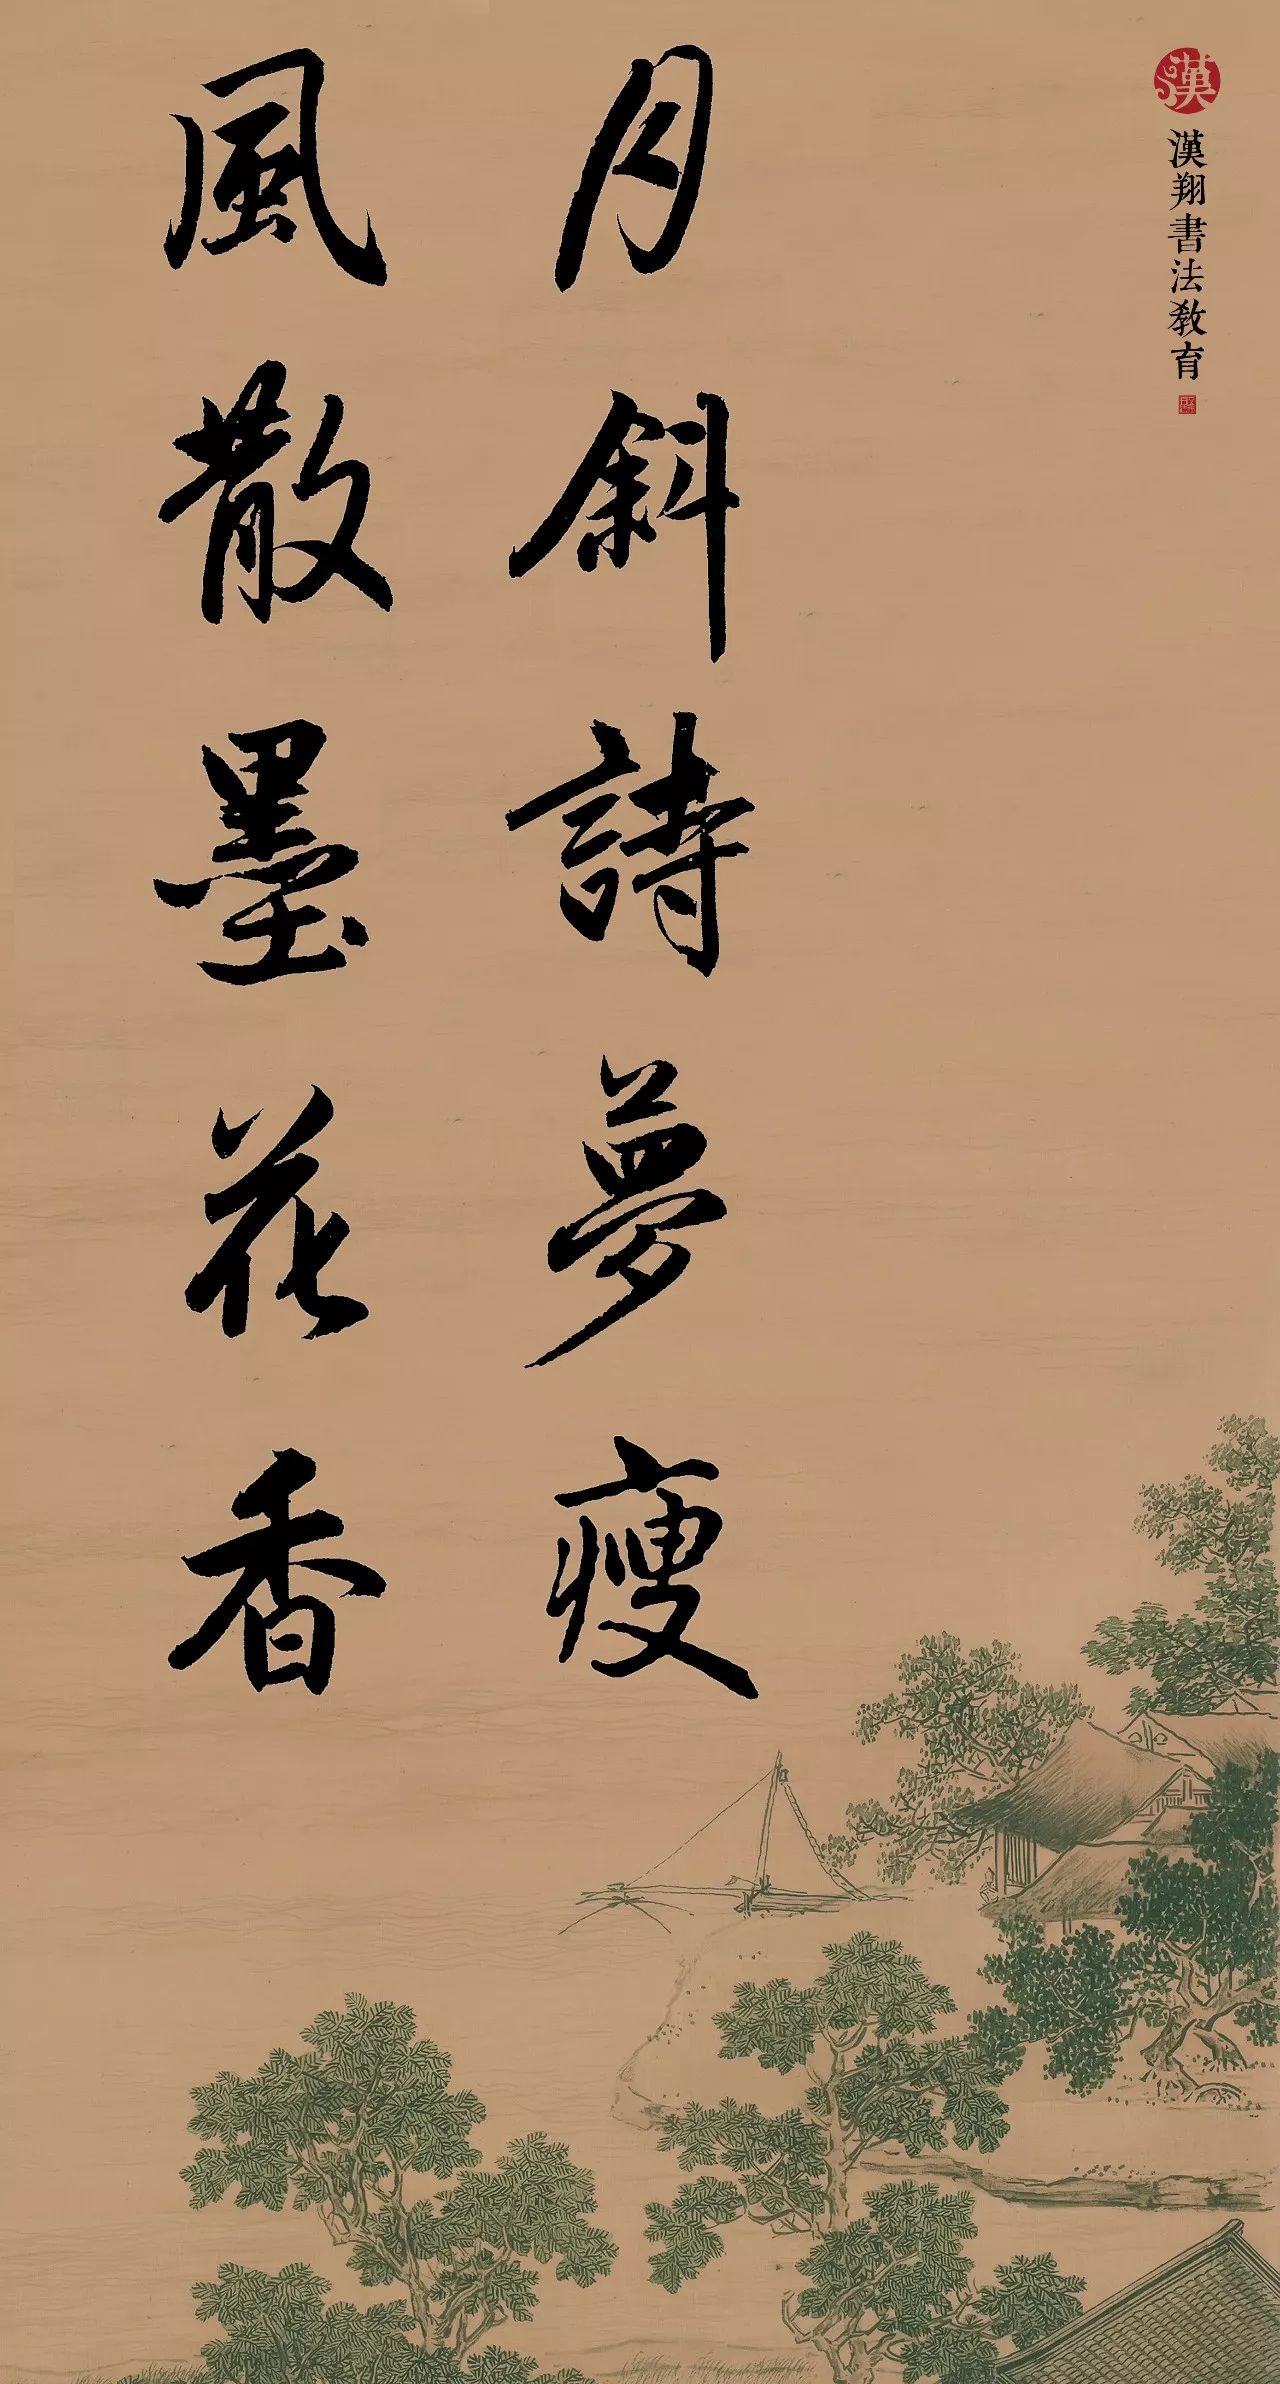 漢
漢翔書法教育
月斜詩夢瘦
風散墨花香